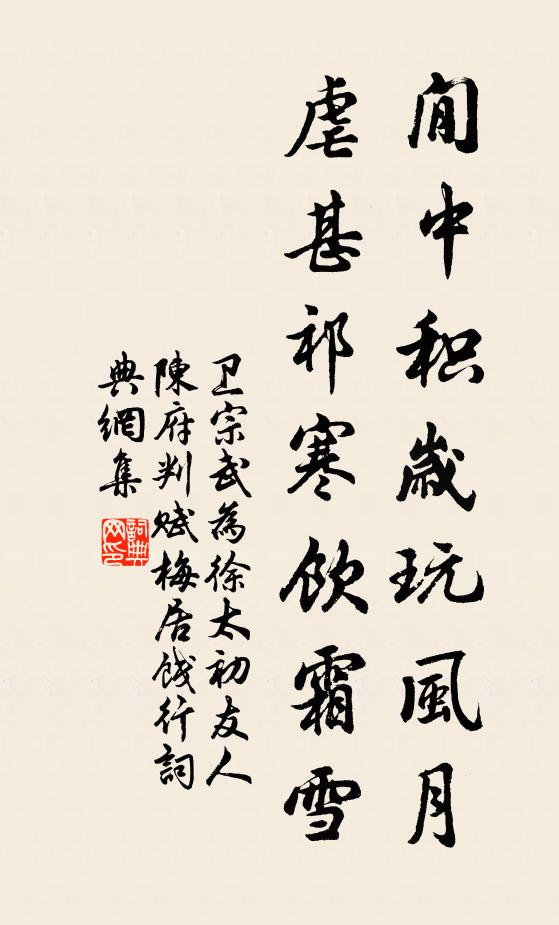 閒中积歲玩風月
虐甚祁寒飲霜雪
卫宗武為徐太初友人
陳府判賦梅居餞行詞
典網集
詞典網印